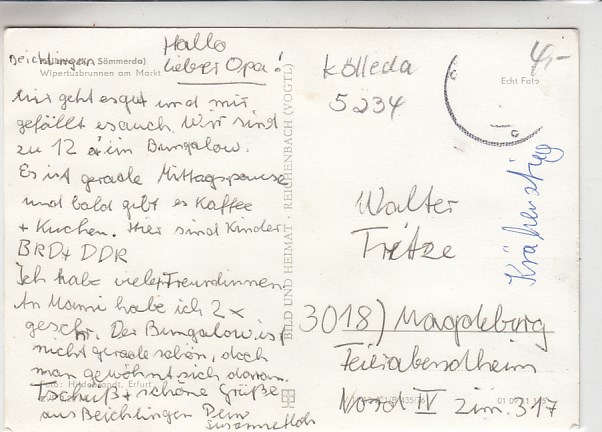 Beichlingen
Sömmerda)
Wipertusbrunnen am Markt
Hallo
lieber Opa!
Mir geht es gut und mir
gefällt es auch. Wir sind
zu 12 in Bungalow.
Es ist gerade Mittagspause
und bald gibt es Kaffee
+ Kuchen. Hier sind Kinder
BRD + DDR
Ich habe viele Freundinnen.
An Mami habe ich 2x
geschr. Der Bungalow ist
nicht gerade schön, doch
man gewöhnt sich daran.
Tschüß + schöne Grüße
aus Beichlingen Dein
Foto: Hildebrandt, Erfurt
BILD UND HEIMAT · REICHENBACH (VOGTL)
Kölleda
5234
Echt Foto
4,-
Walter
3018) Magdeburg
Feierabendheim
Nord IV Zim. 317